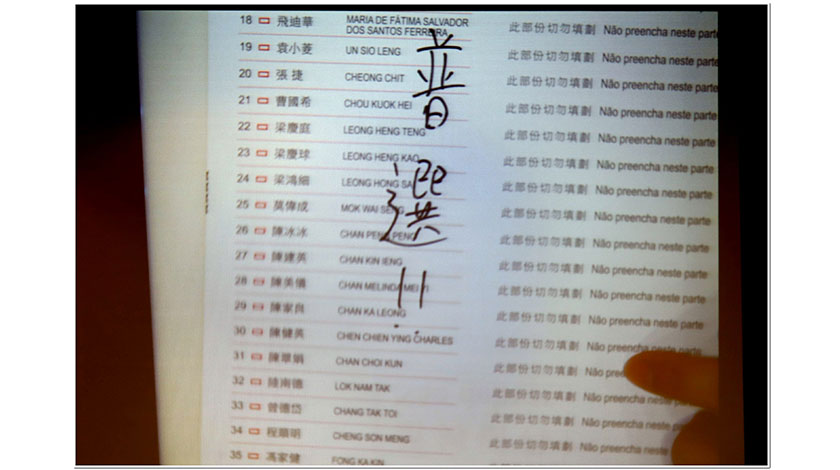 18 飛迪華 MARIA DE FÁTIMA SALVADOR DOS SANTOS FERREIRA 此部份切勿填劃 Não preencha neste parte
19 袁小菱 UN SIO LENG 此部份切勿填劃 Não preencha neste parte
20 張 捷 CHEONG CHIT 此部份切勿填劃 Não preencha neste parte
21 曹國希 CHOU KUOK HEI 此部份切勿填劃 Não preencha neste parte
22 梁慶庭 LEONG HENG TENG 此部份切勿填劃 Não preencha neste parte
23 梁慶球 LEONG HENG KAO 此部份切勿填劃 Não preencha neste parte
24 梁鴻細 LEONG HONG SA 此部份切勿填劃 Não preencha neste parte
25 莫偉成 MOK WAI SENG 此部份切勿填劃 Não preencha neste parte
26 陳冰冰 CHAN PENG PENG 此部份切勿填劃 Não preencha neste parte
27 陳建英 CHAN KIN IENG 此部份切勿填劃 Não preencha neste parte
28 陳美儀 CHAN MELINDA MEI YI 此部份切勿填劃 Não preencha neste parte
29 陳家良 CHAN KA LEONG 此部份切勿填劃 Não preencha neste parte
30 陳健英 CHEN CHIEN YING CHARLES 此部份切勿填劃 Não preencha neste parte
31 陳翠娟 CHAN CHOI KUN 此部份切勿填劃 Não pree
32 陸南德 LOK NAM TAK 此部份切勿填劃 Não preencha neste
33 曾德岱 CHANG TAK TOI 此部份切勿填劃 Não preencha neste
34 CHENG SON MENG 此部份切勿填劃 Não preencha neste
35 馮家健 FONG KA KIN
普選!!